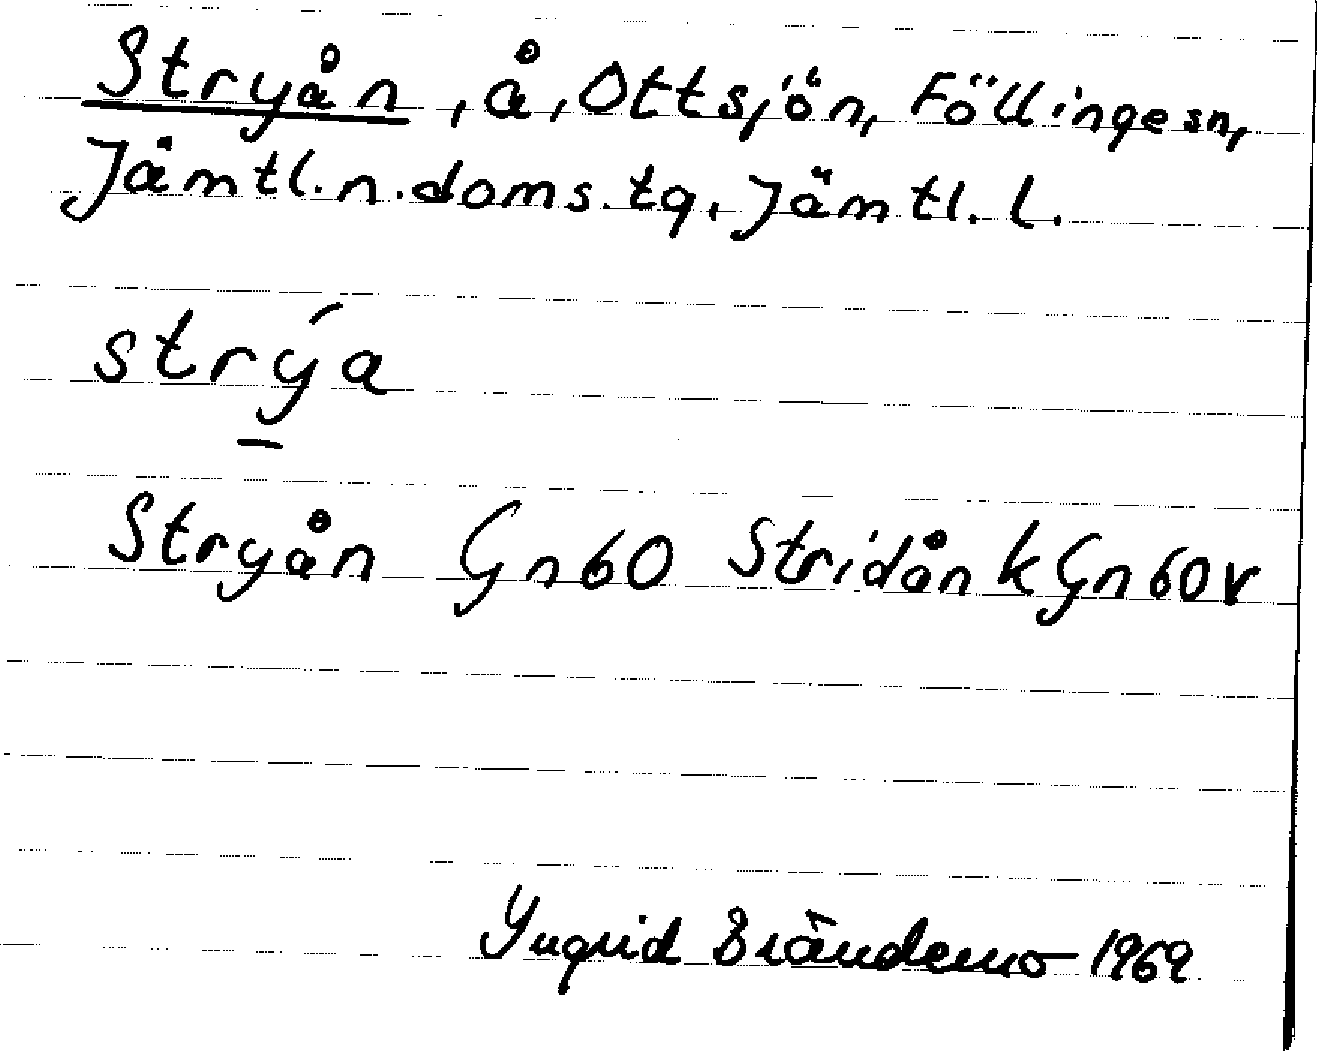 Stryån, å, Ottsjön, Föllinge sn,
Jämtl. n. doms. tg. Jämtl. l.
strýa
Stryån Gn 60 Stridån k Gn 60 v
Yngrid Brändemo 1969